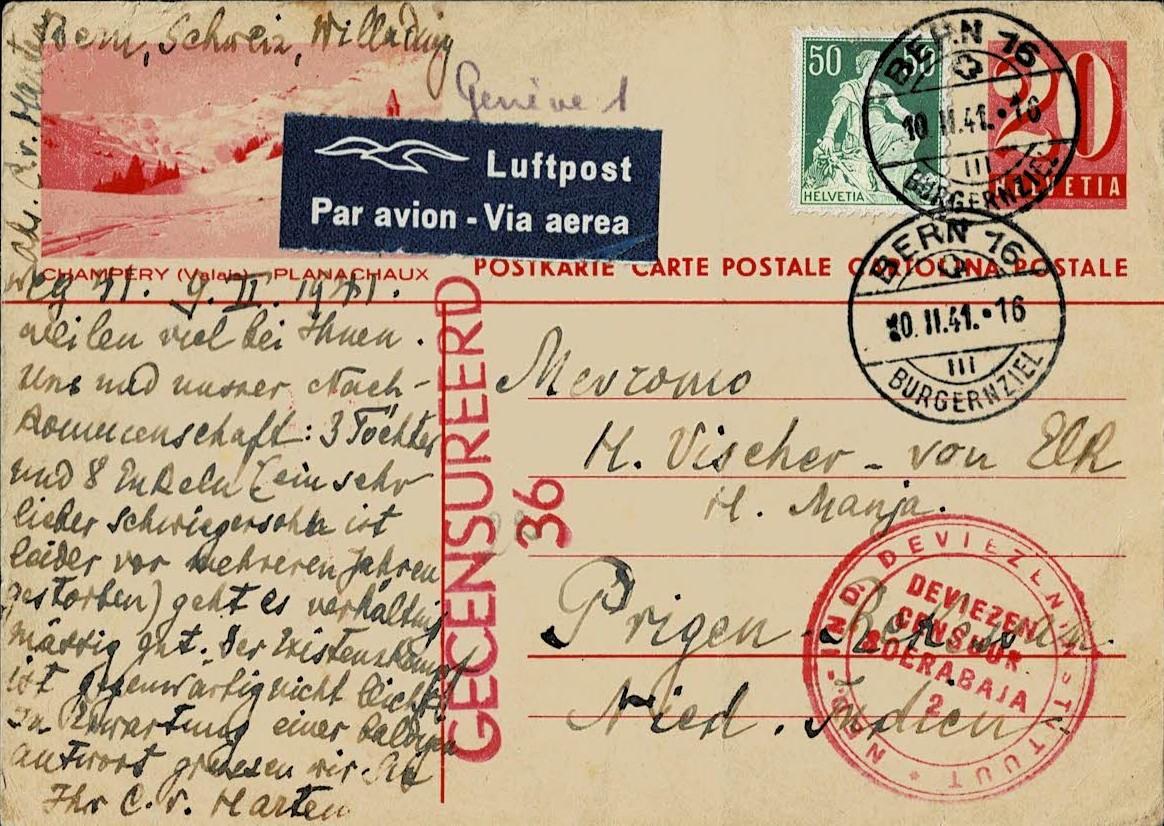 Bern, Schweiz, Willading
weg 41. 9. II. 1941.
Genève 1
Luftpost
Par avion - Via aerea
50 50
HELVETIA
20
HELVETIA
BERN 16
10. II. 41. • 16
III
BURGERNZIEL
BERN 16
10. II. 41. • 16
III
BURGERNZIEL
CHAMPÉRY (Valais) PLANACHAUX
POSTKARTE CARTE POSTALE CARTOLINA POSTALE
weilen viel bei Ihnen.
Uns und unsrer Nach-
kommenschaft: 3 Töchter
und 8 Enkeln (ein sehr
lieber Schwiegersohn ist
leider vor mehreren Jahren
gestorben) geht es verhältnis
mässig gut. Der Existenzkampf
ist gegenwärtig nicht leicht.
In Erwartung einer baldigen
Antwort grüssen wir Sie
Ihr C. v. Harten
GECENSUREERD
36
Mevromo
H. Vischer - von Elk
H. Manja.
Prigen
Nied. Indien
NED.-IND. DEVIEZEN INSTITUUT
DEVIEZEN
CENSUUR
SOERABAIA
2